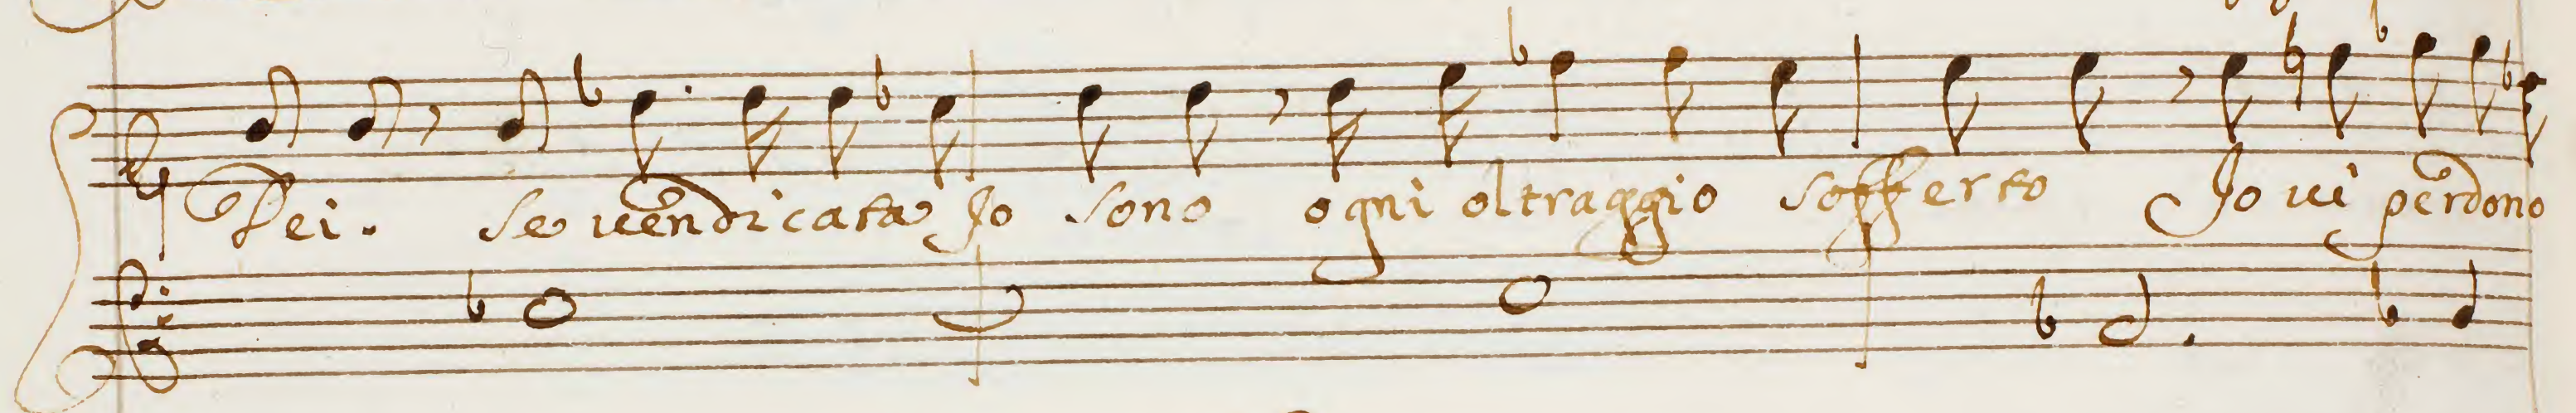 Dei. Se uendicata Io sono ogni oltraggio sofferto Io ui perdono